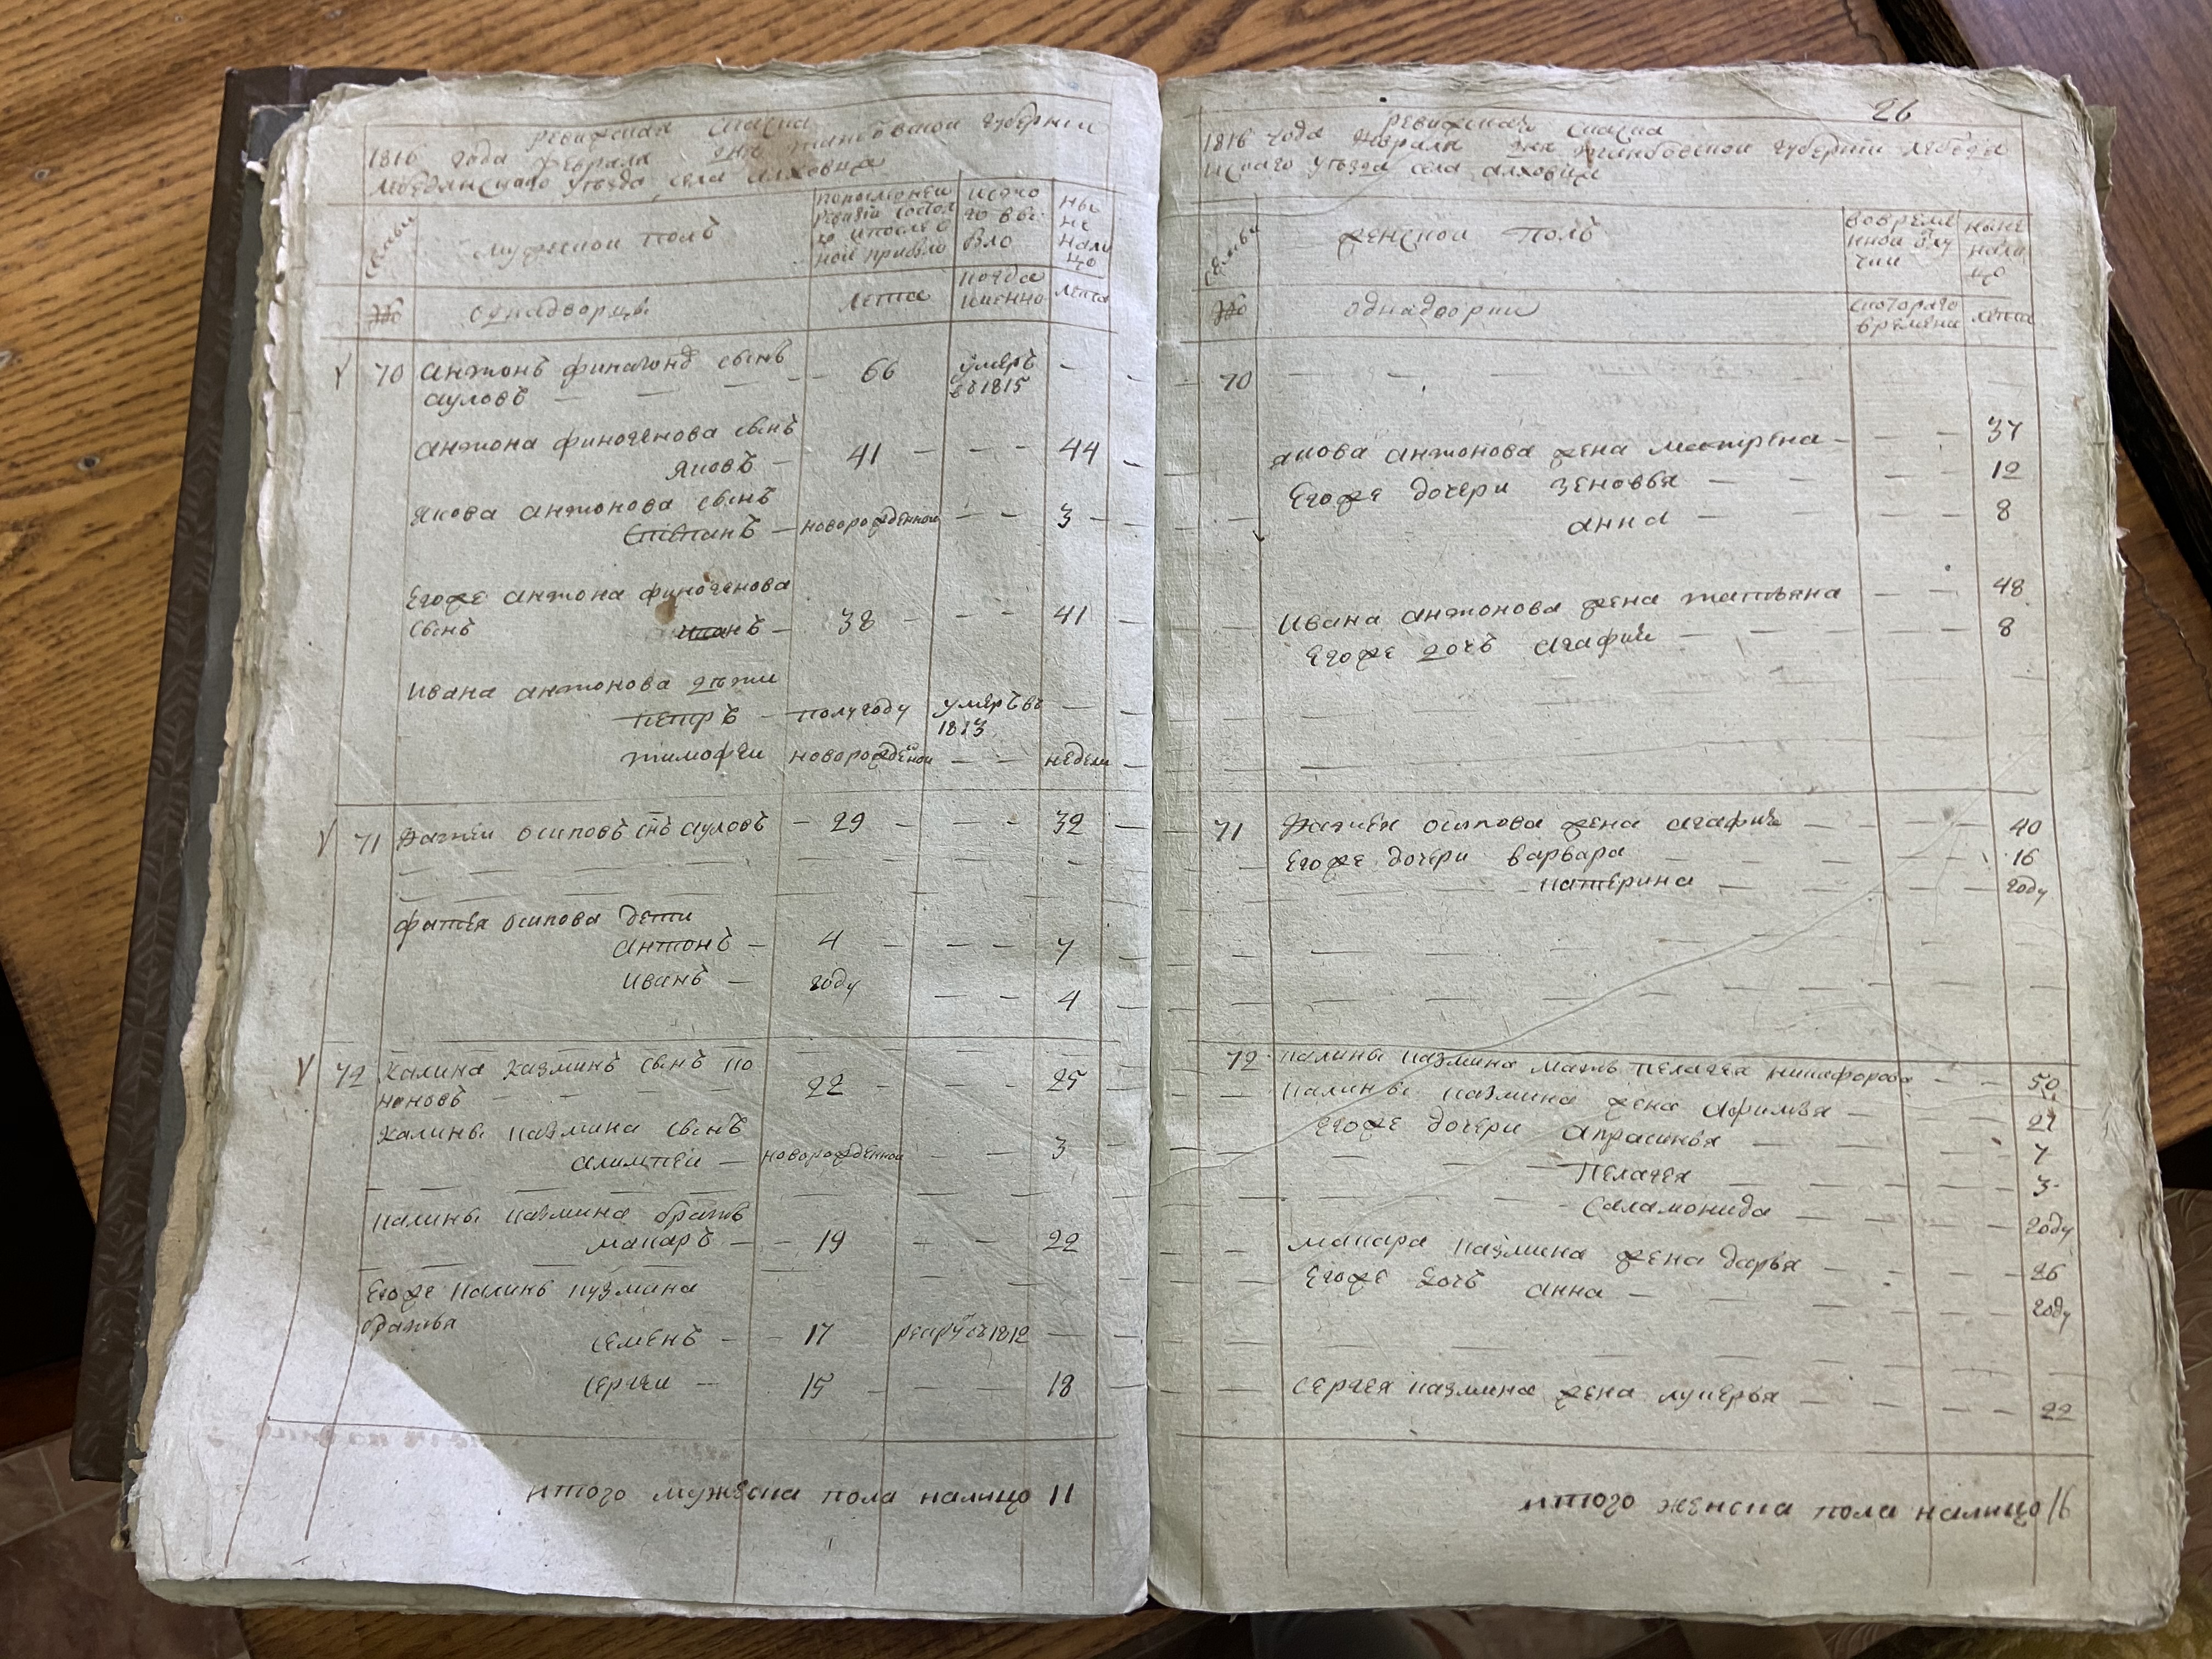 ревижская скаска
1816 года февраля дня танбовской губернии
лебедянскаго уезда села алховца
семьи
мужской полъ
попоследней
ревизии состоя
ло и после
оной прибыло
исъ то
го выбы
вло
ны
не
нали
цо
№
однадворцы
лета
когда
именно
лета
70 антонъ финагонъ сынъ 66 умеръ
ауловъ въ 1815
антона финогенова сынъ
яковъ 41 44
якова антонова сынъ
степанъ новорожденной 3
Егоже антона финогенова
сынъ иванъ 38 41
ивана антонова дети
петръ полугоду умеръ въ
1813
тимофеи новорожденой недели
71 Фатеи осиповъ снъ ауловъ 29 32
фатея осипова дети
антонъ 4 7
иванъ году 4
72 Калина казминъ сынъ ко 22 25
ноновъ
Калины казмина сынъ
алимпеи новорожденной 3
калины казмина братъ
макаръ 19 22
Егоже калины кузмина
братья
семенъ 17 рекрутъ 1812
сергеи 15 18
итого мужеска пола налицо 11
26
ревижская скаска
1816 года февраля дня танбовской губернии лебедя
нскаго уезда села алховца
семьи
женской полъ
вовреме
нной отлу
чки
ныне
нали
цо
№
однадворки
скотораго
времени
лета
70
якова антонова жена матрена 37
Егоже дочери зеновья 12
анна 8
ивана антонова жена татьяна 48
Егоже дочь агафия 8
71 Фатея осипова жена агафия 40
Егоже дочери варвара 16
катерина году
72 калины казмина мать пелагея никафорова 50
калины казмина жена афимья 27
Егоже дочери апрасинья 7
пелагея 3
саламонида году
макара казмина жена дарья 26
Егоже дочь анна году
сергея казмина жена лукерья 22
итого женска пола налицо 16